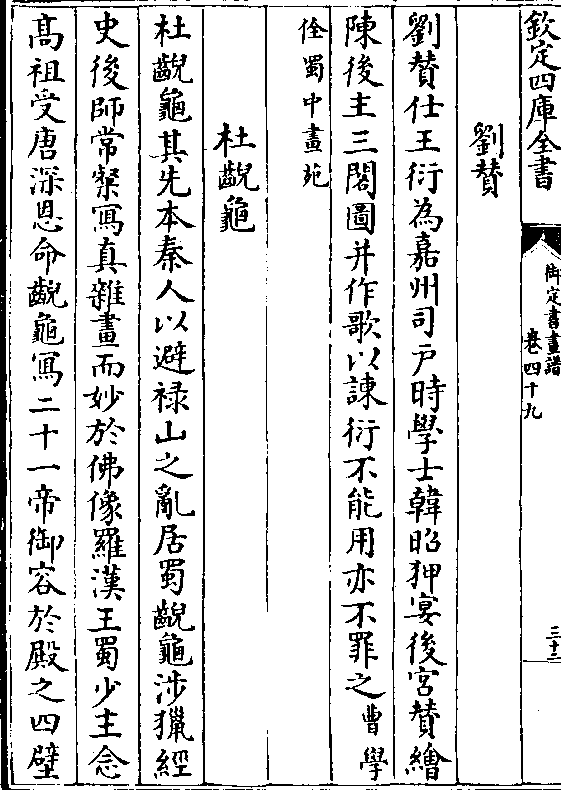 欽定四庫全書
御定書畫譜
卷四十九
三十二
劉贊
劉贊仕王衍為嘉州司戸時學士韓昭狎宴後宮贊繪
陳後主三閣圖并作歌以諫衍不能用亦不罪之曹學
佺蜀中畫苑
杜齯龜
杜齯龜其先本秦人以避禄山之亂居蜀齯龜涉獵經
史後師常粲寫真雜畫而妙於佛像羅漢王蜀少主念
髙祖受唐深恩命齯龜寫二十一帝御容於殿之四壁